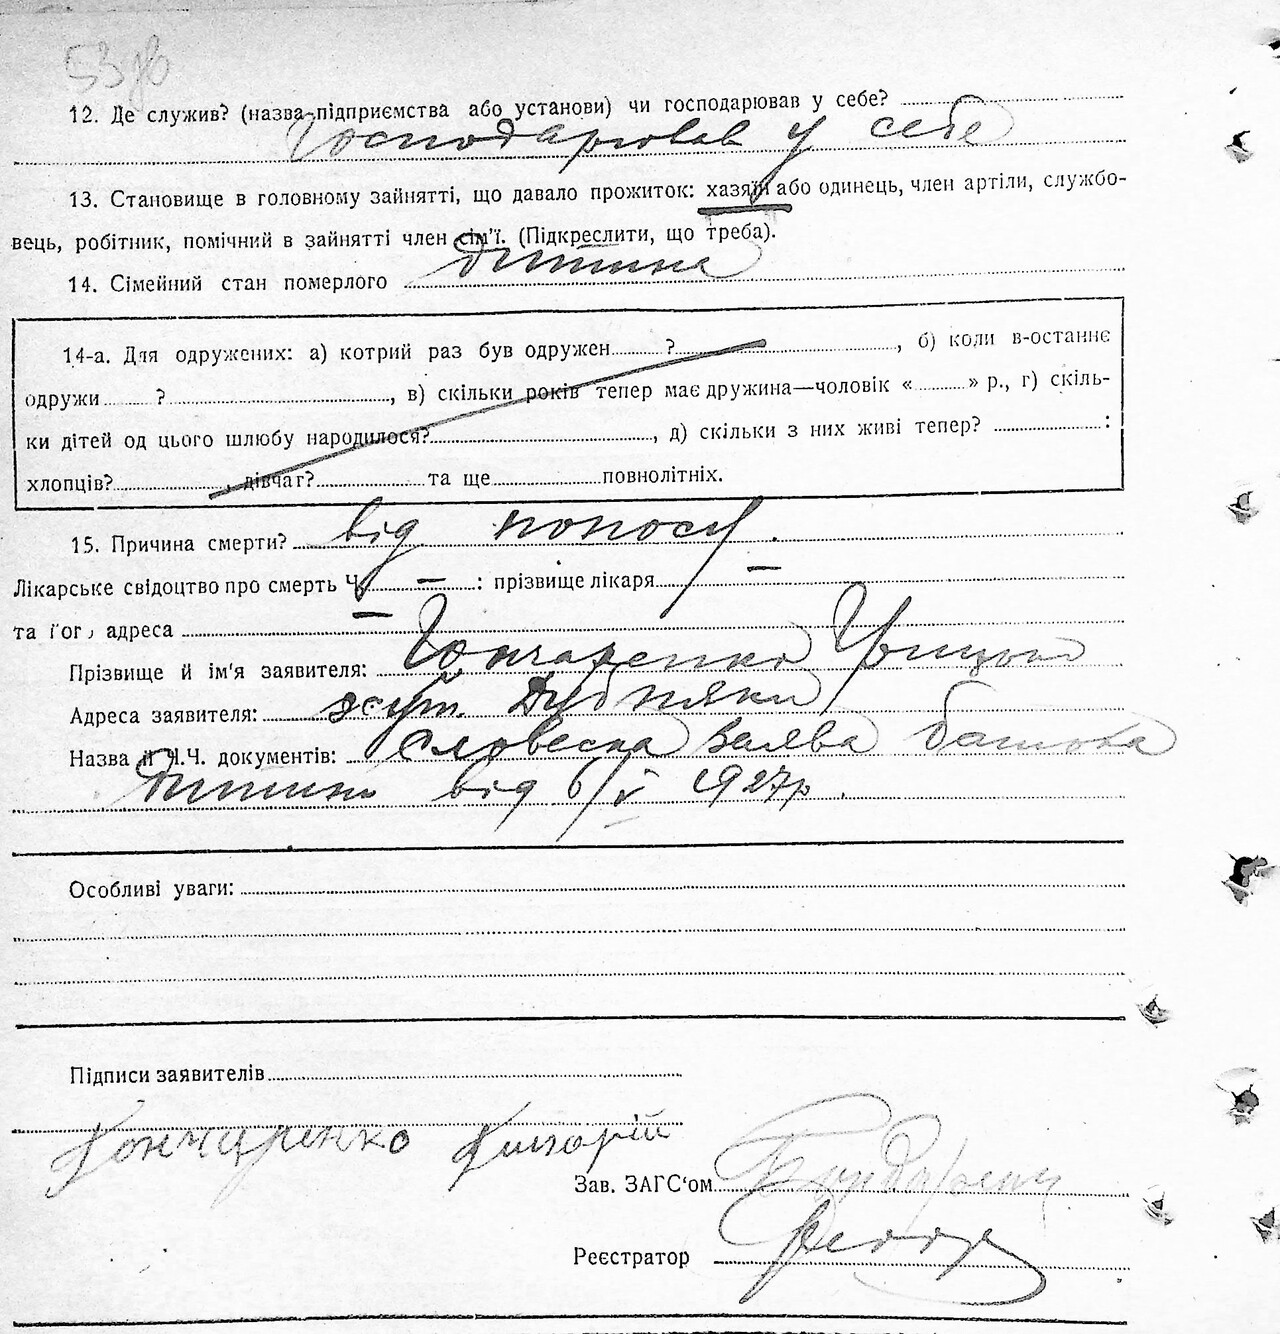 53зв
12. Де служив? (назва підприємства або установи) чи господарював у себе?
Господарював у себе
13. Становище в головному зайнятті, що давало прожиток: хазяїн або одинець, член артіли, службо-
вець, робітник, помічний в зайнятті член сім'ї. (Підкреслити, що треба).
14. Сімейний стан померлого дитина
14-а. Для одружених: а) котрий раз був одружен ?, б) коли в-останнє
одружи ?, в) скільки років тепер має дружина—чоловік « » р., г) скіль-
ки дітей од цього шлюбу народилося?, д) скільки з них живі тепер? :
хлопців?, дівчат? та ще повнолітніх.
15. Причина смерти? від поносу.
Лікарське свідоцтво про смерть Ч. — : прізвище лікаря —
та його адреса —
Прізвище й ім'я заявителя: Гончаренко Грицько
Адреса заявителя: хут. Дубняки
Назва й Ч.Ч. документів: Словесна заява батька
дитини від 6/V 1927р.
Особливі уваги:
Підписи заявителів
Гончаренко Григорій
Зав. ЗАГС'ом
Реєстратор